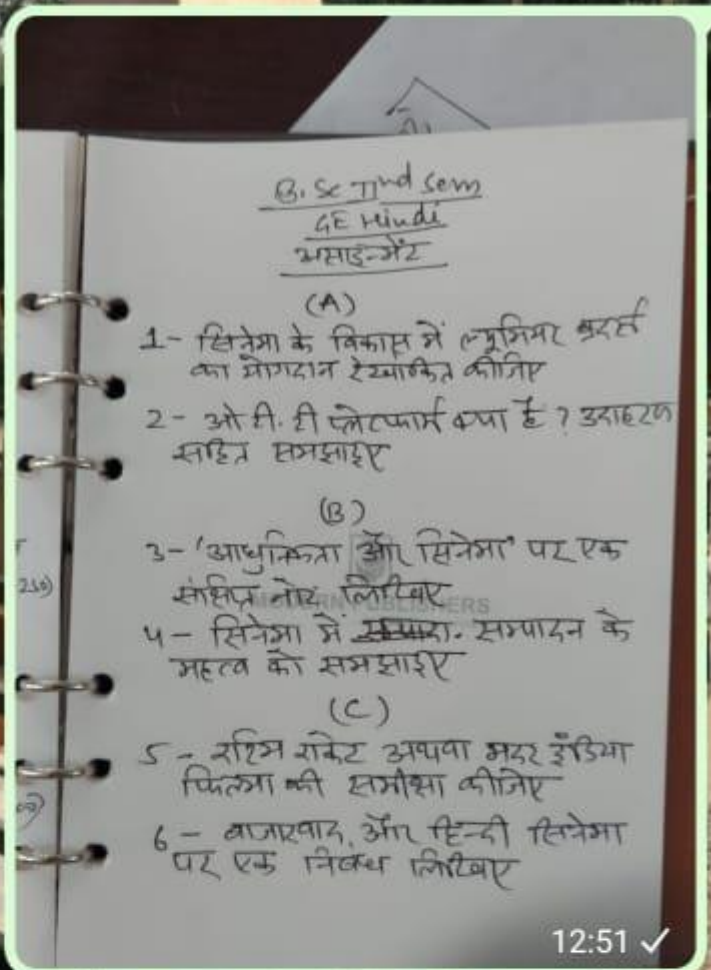 B. Sc IInd Sem
GE Hindi
असाइन्मेंट
(A)
1- सिनेमा के विकास में ल्यूमियर ब्रदर्स
का योगदान रेखांकित कीजिए
2- ओ टी. टी प्लेटफार्म क्या है ? उदाहरण
सहित समझाइए
(B)
3- 'आधुनिकता और सिनेमा' पर एक
संक्षिप्त नोट लिखिए
MODERN PUBLISHERS
4- सिनेमा में सम्पादन के
महत्व को समझाइए
(C)
5- रश्मि राकेट अथवा मदर इंडिया
फिल्म की समीक्षा कीजिए
6- बाजारवाद, और हिन्दी सिनेमा
पर एक निबंध लिखिए
12:51